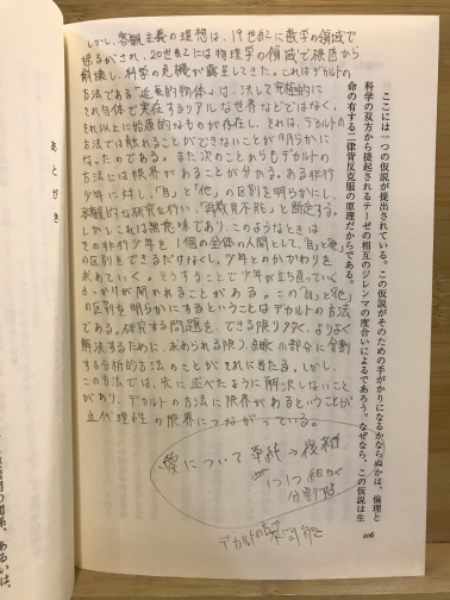 ここには一つの仮説が提出されている。この仮説がそのための手がかりになるかならぬかは、倫理と
科学の双方から提起されるテーゼの相互のジレンマの度合いによるであろう。なぜなら、この仮説は生
命の有する二律背反克服の原理だからである。
206
しかし、客観主義の理想は、19世紀に数学の領域で
揺るがされ、20世紀には物理学の領域で根底から
崩壊し、科学の危機が露呈してきた。これはデカルトの
方法である「延長的物体」は、決して究極的に
それ自体で実在するリアルな世界などではなく、
それ以上に始原的なものが存在し、それは、デカルトの
方法では触れることができないことが明らかに
なったのである。また次のことからもデカルトの
方法には限界があることが分かる。ある非行
少年に対し、「自」と「他」の区別を明らかにし、
客観的な研究を行い、「再教育不能」と断定する。
しかしこれは無意味であり、このようなときは
その非行少年を1個の全体の人間として、「自」と「他」
の区別をできるだけなくし、少年とのかかわりを
求めていく。そうすることで少年が立ち直っていく
きっかけが開かれることがある。この「自」と「他」
の区別を明らかにするということはデカルトの方法
である。研究する問題を、できる限り多く、よりよく
解決するために、求められる限り、細かく小部分に分割
する分析的方法のことがそれに当たる。しかし、
この方法では、先に述べたように解決しないこと
があり、デカルトの方法に限界があるということが
近代理性の限界につながっている。
について 単純→複雑
一つ一つ細かく
分割
デカルトの
あとがき